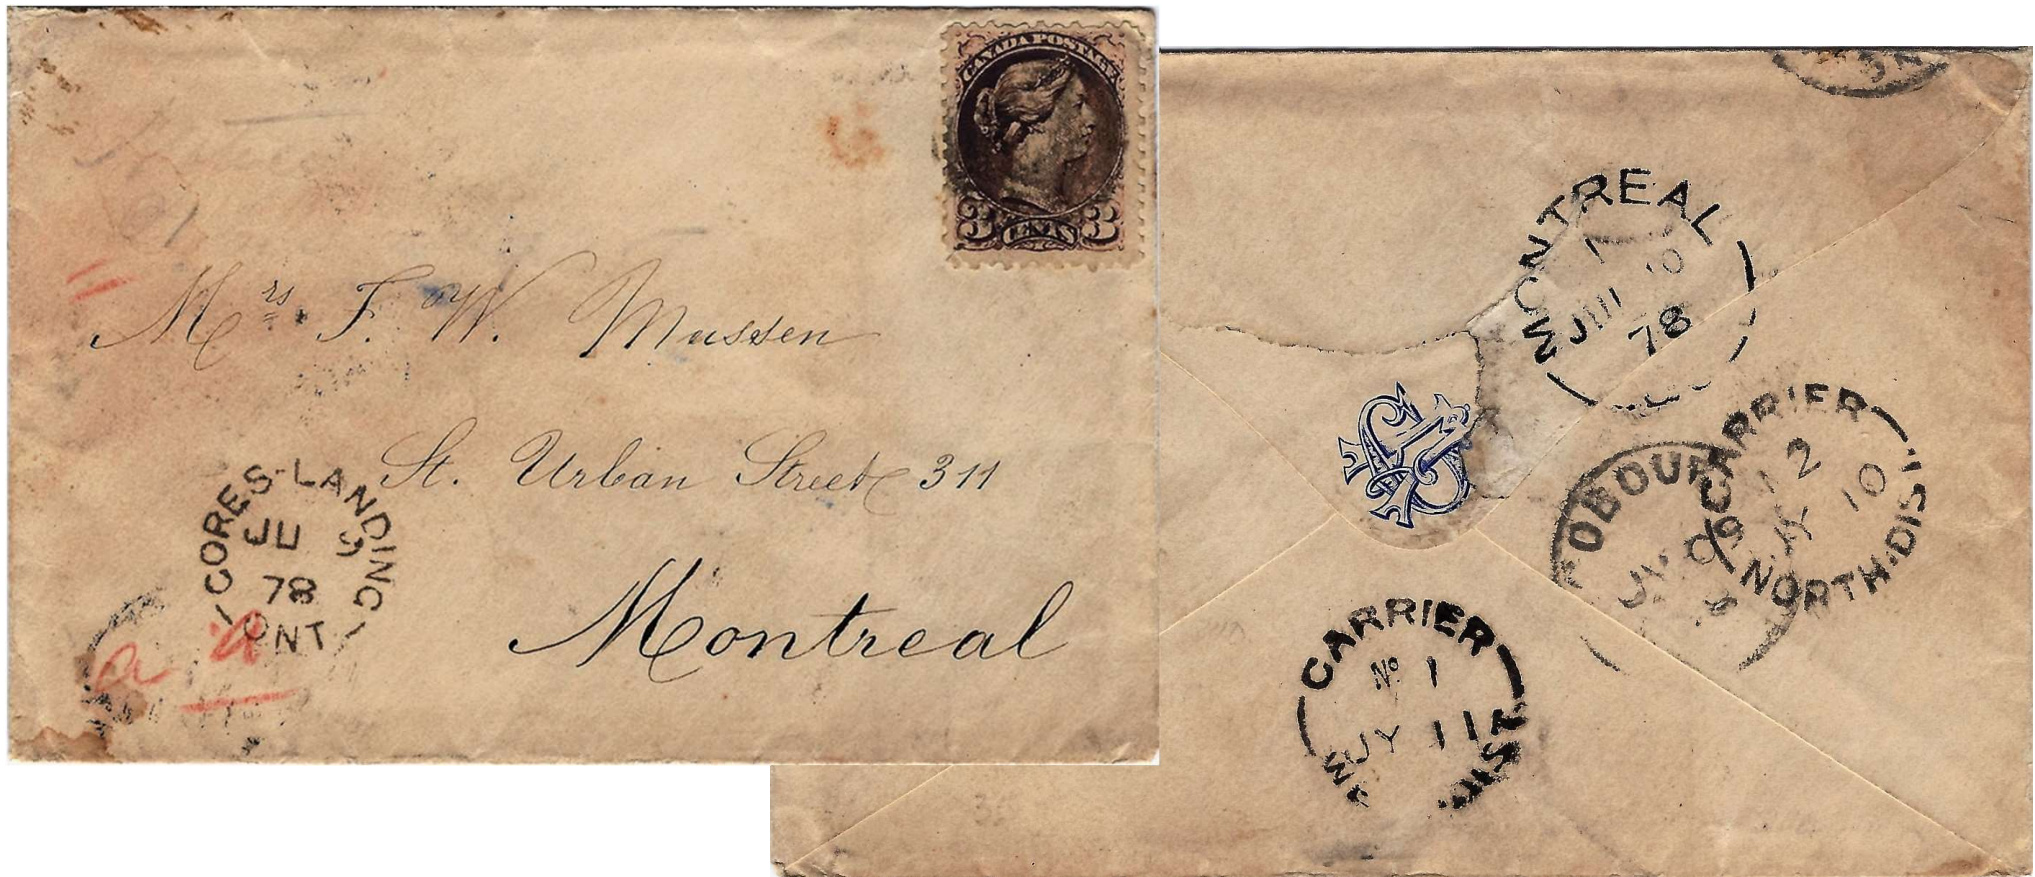 CANADA POSTAGE
3 CENTS 3
Mrs. F. W. Mussen
St. Urban Street 311
Montreal
GORES-LANDING
JU 9
78
ONT
MONTREAL
1
JU 10
78
CARRIER
12
JY 10
NORTH-DIST.
COBOURG
JY
CARRIER
No 1
JY 11
DIST